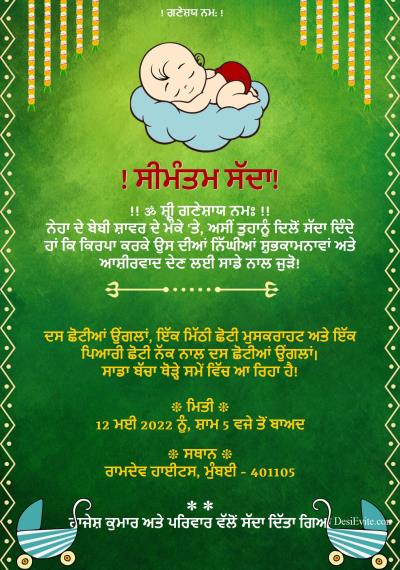 ! ਗਣੇਸ਼ਾਯ ਨਮ: !
! ਸੀਮੰਤਮ ਸੱਦਾ!
!! ॐ ਸ਼੍ਰੀ ਗਣੇਸ਼ਾਯ ਨਮਃ !!
ਨੇਹਾ ਦੇ ਬੇਬੀ ਸ਼ਾਵਰ ਦੇ ਮੌਕੇ 'ਤੇ, ਅਸੀਂ ਤੁਹਾਨੂੰ ਦਿਲੋਂ ਸੱਦਾ ਦਿੰਦੇ
ਹਾਂ ਕਿ ਕਿਰਪਾ ਕਰਕੇ ਉਸ ਦੀਆਂ ਨਿੱਘੀਆਂ ਸ਼ੁਭਕਾਮਨਾਵਾਂ ਅਤੇ
ਆਸ਼ੀਰਵਾਦ ਦੇਣ ਲਈ ਸਾਡੇ ਨਾਲ ਜੁੜੋ!
ਦਸ ਛੋਟੀਆਂ ਉਂਗਲਾਂ, ਇੱਕ ਮਿੱਠੀ ਛੋਟੀ ਮੁਸਕਰਾਹਟ ਅਤੇ ਇੱਕ
ਪਿਆਰੀ ਛੋਟੀ ਨੱਕ ਨਾਲ ਦਸ ਛੋਟੀਆਂ ਉਂਗਲਾਂ|
ਸਾਡਾ ਬੱਚਾ ਥੋੜ੍ਹੇ ਸਮੇਂ ਵਿੱਚ ਆ ਰਿਹਾ ਹੈ!
❊ ਮਿਤੀ ❊
12 ਮਈ 2022 ਨੂੰ, ਸ਼ਾਮ 5 ਵਜੇ ਤੋਂ ਬਾਅਦ
❊ ਸਥਾਨ ❊
ਰਾਮਦੇਵ ਹਾਈਟਸ, ਮੁੰਬਈ - 401105
* *
ਰਾਜੇਸ਼ ਕੁਮਾਰ ਅਤੇ ਪਰਿਵਾਰ ਵੱਲੋਂ ਸੱਦਾ ਦਿੱਤਾ ਗਿਆ
DesiEvite.com